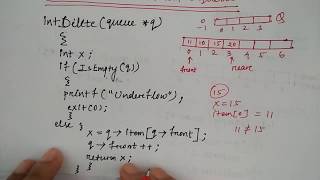 int Dilete (queue *q)
{
int x;
if (IsEmpty(q))
{
printf ("Underflow");
exit(0);
}
else {
x = q → item [q → front];
q → front ++;
return x;
} }
Q
-1 0 1 2 3
11 10 15 20
0 1 2 3 4 5 6
front
rear
15
x = 15
item[0] = 11
11 ≠ 15